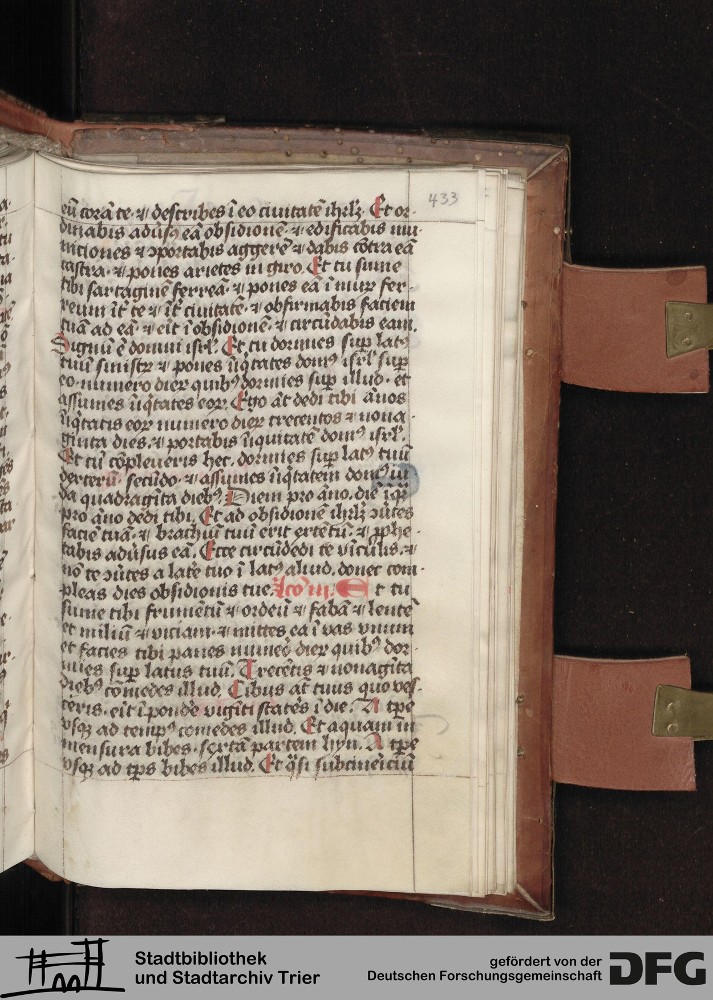 433
eū corā te · ⁊ describes ī eo ciuitatē ihrlꝫ · Et or-
dinabis adūsꝰ eā obsidionē · ⁊ edificabis mu-
nitiones ⁊ ꝯportabis aggerē ⁊ dabis cōtra eā
castra · ⁊ pones arietes in giro. Et tu sume
tibi sartaginē ferreā · ⁊ pones eā ī murꝝ fer-
reum īt̄ te ⁊ īt̄ ciuitatē · ⁊ obfirmabis faciem
tuā ad eā · ⁊ eit̄ ī obsidionē · ⁊ circūdabis eam.
Signū ē domui isrl̓. Et tu dormies suꝑ latꝰ
tuū sinistꝝ ⁊ pones īiq̄tates domꝰ isrl̓ suꝑ
eo · numero dieꝝ quibꝰ dormies suꝑ illud · et
assumes īiq̄tates eoꝝ. Ego āt dedi tibi ānos
īiq̄tatis eoꝝ numero dieꝝ trecentos ⁊ nona-
ginta dies · ⁊ portabis īiquitatē domꝰ isrl̓.
Et cū cōpleueris hec · dormies suꝑ latꝰ tuū
dexterū · secūdo · ⁊ assumes īiq̄tatem domꝰ iu
da quadragīta diebꝰ. Diem pro āno · diē īqꝫ
pro āno dedi tibi. Et ad obsidionē ihrlꝫ ꝯūtes
faciē tuā · ⁊ brachiū tuū erit extētū · ⁊ ꝓphe-
tabis adūsus eā. Ecce circūdedi te vīculis · ⁊
nō te ꝯūtes a latē tuo ī latꝰ aliud · donec com-
pleas dies obsidionis tue. Lcō iii. Et tu
sume tibi frumētū ⁊ ordeū ⁊ fabā ⁊ lentē
et miliū ⁊ viciam · ⁊ mittes ea ī vas vnum
et facies tibi panes numeō dieꝝ quibꝰ dor-
mies suꝑ latus tuū. Trecētis ⁊ nonagīta
diebꝰ comedes illud. Cibus āt tuus quo ves-
ceris · eit̄ ī pondē vigīti statēs ī die. A tꝑe
vsqꝫ ad tempꝰ comedes illud. Et aquam in
mensura bibes · sextā partem hyn. A tꝑe
vsqꝫ ad tꝑs bibes illud. Et q̄si subcinēiciū
Stadtbibliothek
und Stadtarchiv Trier
gefördert von der
Deutschen Forschungsgemeinschaft
DFG